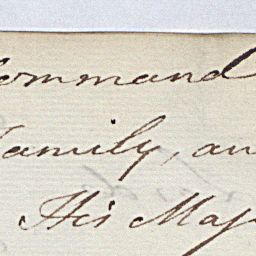 command
Family, an
His Maj